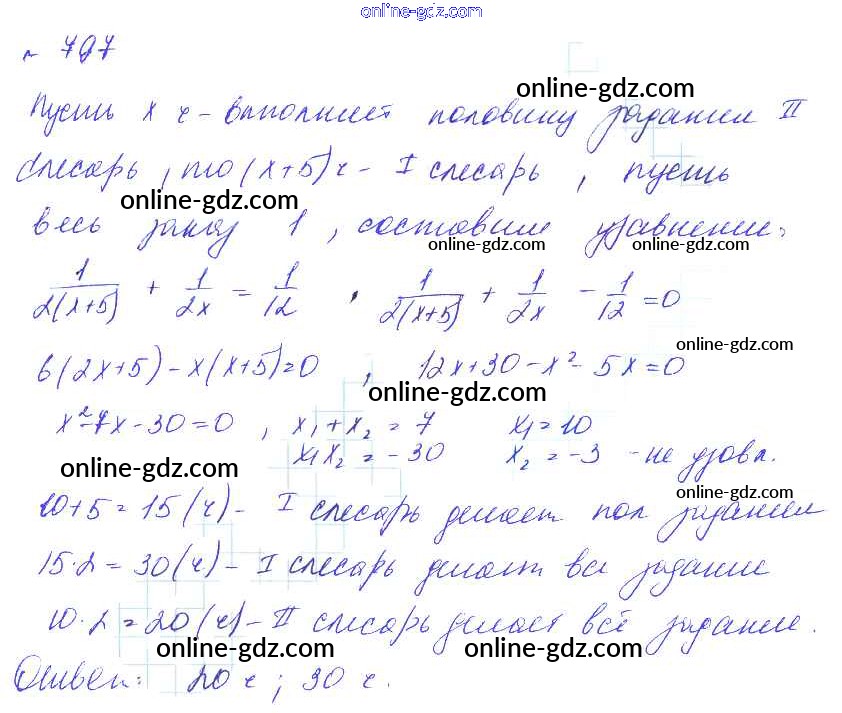 online-gdz.com
№ 797
online-gdz.com
Пусть x ч - выполнит половину задания II
слесарь, то (x+5) ч - I слесарь, пусть
online-gdz.com
весь заказ 1, составим уравнение,
online-gdz.com online-gdz.com
1/(2(x+5)) + 1/(2x) = 1/12 , 1/(2(x+5)) + 1/(2x) - 1/12 = 0
online-gdz.com
6(2x+5) - x(x+5) = 0 , 12x+30-x²-5x=0
online-gdz.com
x²-7x-30=0 , x₁+x₂ = 7 x₁=10
x₁x₂ = -30 x₂ = -3 - не удовл.
online-gdz.com
online-gdz.com
10+5=15 (ч) - I слесарь делает пол задания
15·2=30(ч) - I слесарь делает все задание
online-gdz.com
10·2=20 (ч) - II слесарь делает всё задание.
online-gdz.com online-gdz.com
Ответ: 20 ч ; 30 ч.